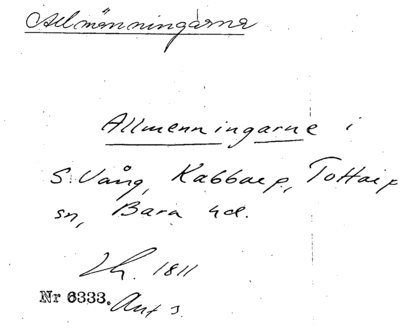 Allmänningarne
Allmenningarne i
S. Vång, Kabbarp, Tottarp
sn, Bara hd.
Lh. 1811
Nr 6333. Ant 3.